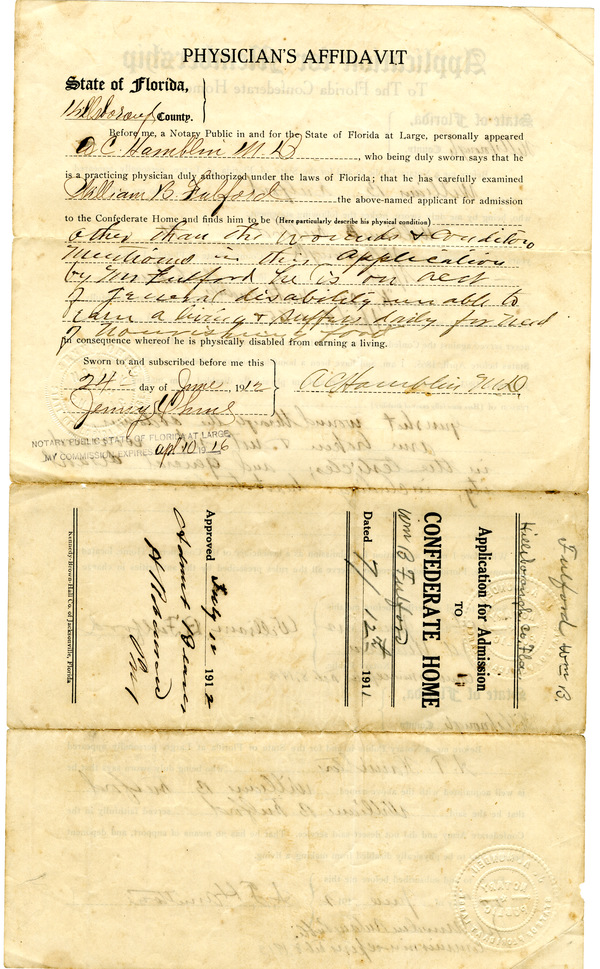 PHYSICIAN'S AFFIDAVIT
State of Florida,
Hillsborough County.
Before me, a Notary Public in and for the State of Florida at Large, personally appeared
A C Hamblin M D, who being duly sworn says that he
is a practicing physician duly authorized under the laws of Florida; that he has carefully examined
William B. Fulford the above-named applicant for admission
to the Confederate Home and finds him to be (Here particularly describe his physical condition)
other than the wounds & condition
mentioned in this application
by Mr Fulford he is on acct
of general disability unable to
earn a living & suffers daily for need
of nourishing food
in consequence whereof he is physically disabled from earning a living.
Sworn to and subscribed before me this
24th day of June 1912
A C Hamblin M D
NOTARY PUBLIC STATE OF FLORIDA AT LARGE
MY COMMISSION EXPIRES apl 10 1916
Fulford, Wm B.
Hillsborough Co, Fla
Application for Admission
TO
CONFEDERATE HOME
Wm B Fulford
Dated 7/12th 1911
Approved July 1912
Kennedy-Brown-Hall Co. Jacksonville, Florida